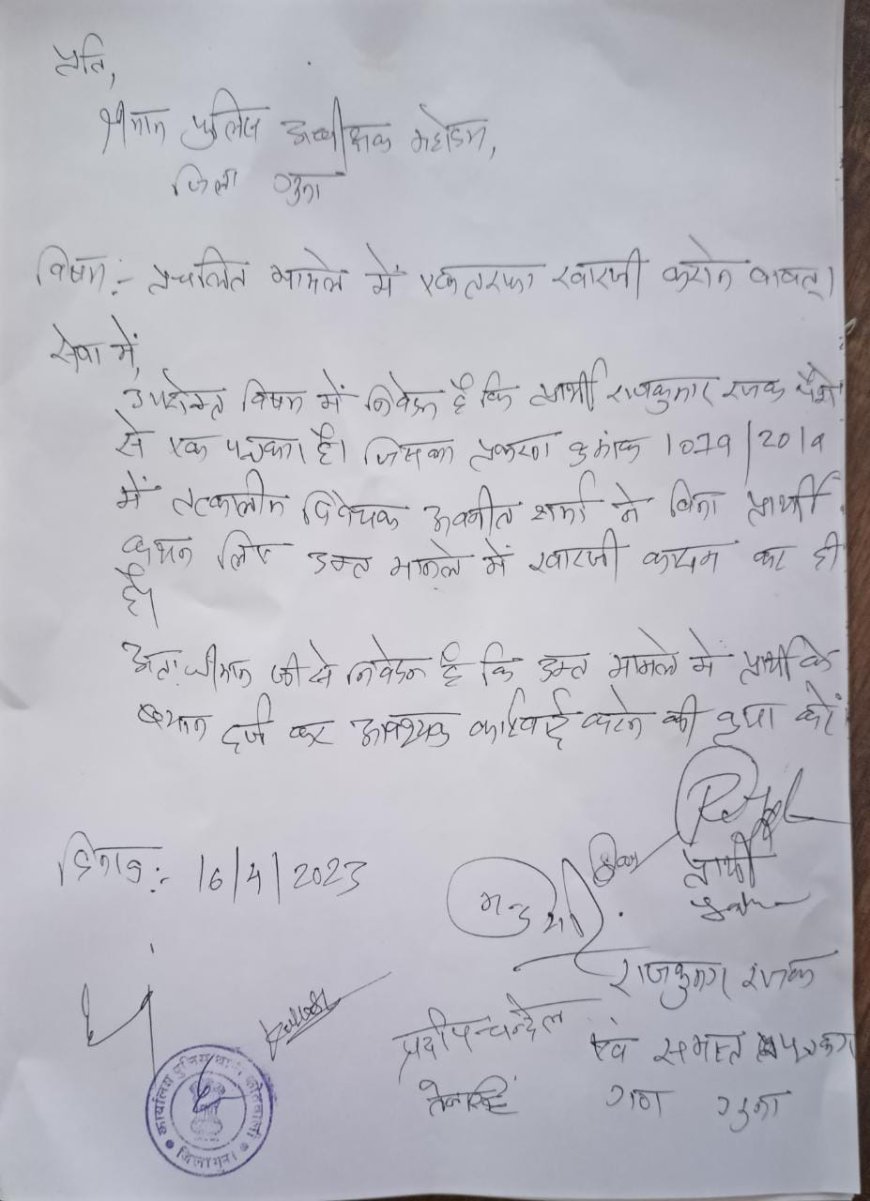 प्रति,
श्रीमान पुलिस अधीक्षक महोदय,
जिला गुना
विषय:- प्रचलित मामले में एकतरफा खारजी करने बावत्।
सेवा में,
उपरोक्त विषय में निवेदन है कि प्रार्थी राजकुमार रजक पेशे
से एक पत्रकार है। जिसका प्रकरण क्रमांक 1079/2019
में तत्कालीन विवेचक अवनीत शर्मा ने बिना प्रार्थी
कथन लिए उक्त मामले में खारजी कायम कर दी
है।
अतः श्रीमान जी से निवेदन है कि उक्त मामले में प्रार्थी के
बयान दर्ज कर आवश्यक कार्रवाई करने की कृपा करें।
दिनांक:- 16/4/2023
प्रार्थी
राजकुमार रजक
प्रदीप चन्देल एवं समस्त पत्रकार
गण गुना
कार्यालय पुलिस थाना कोतवाली
जिला गुना